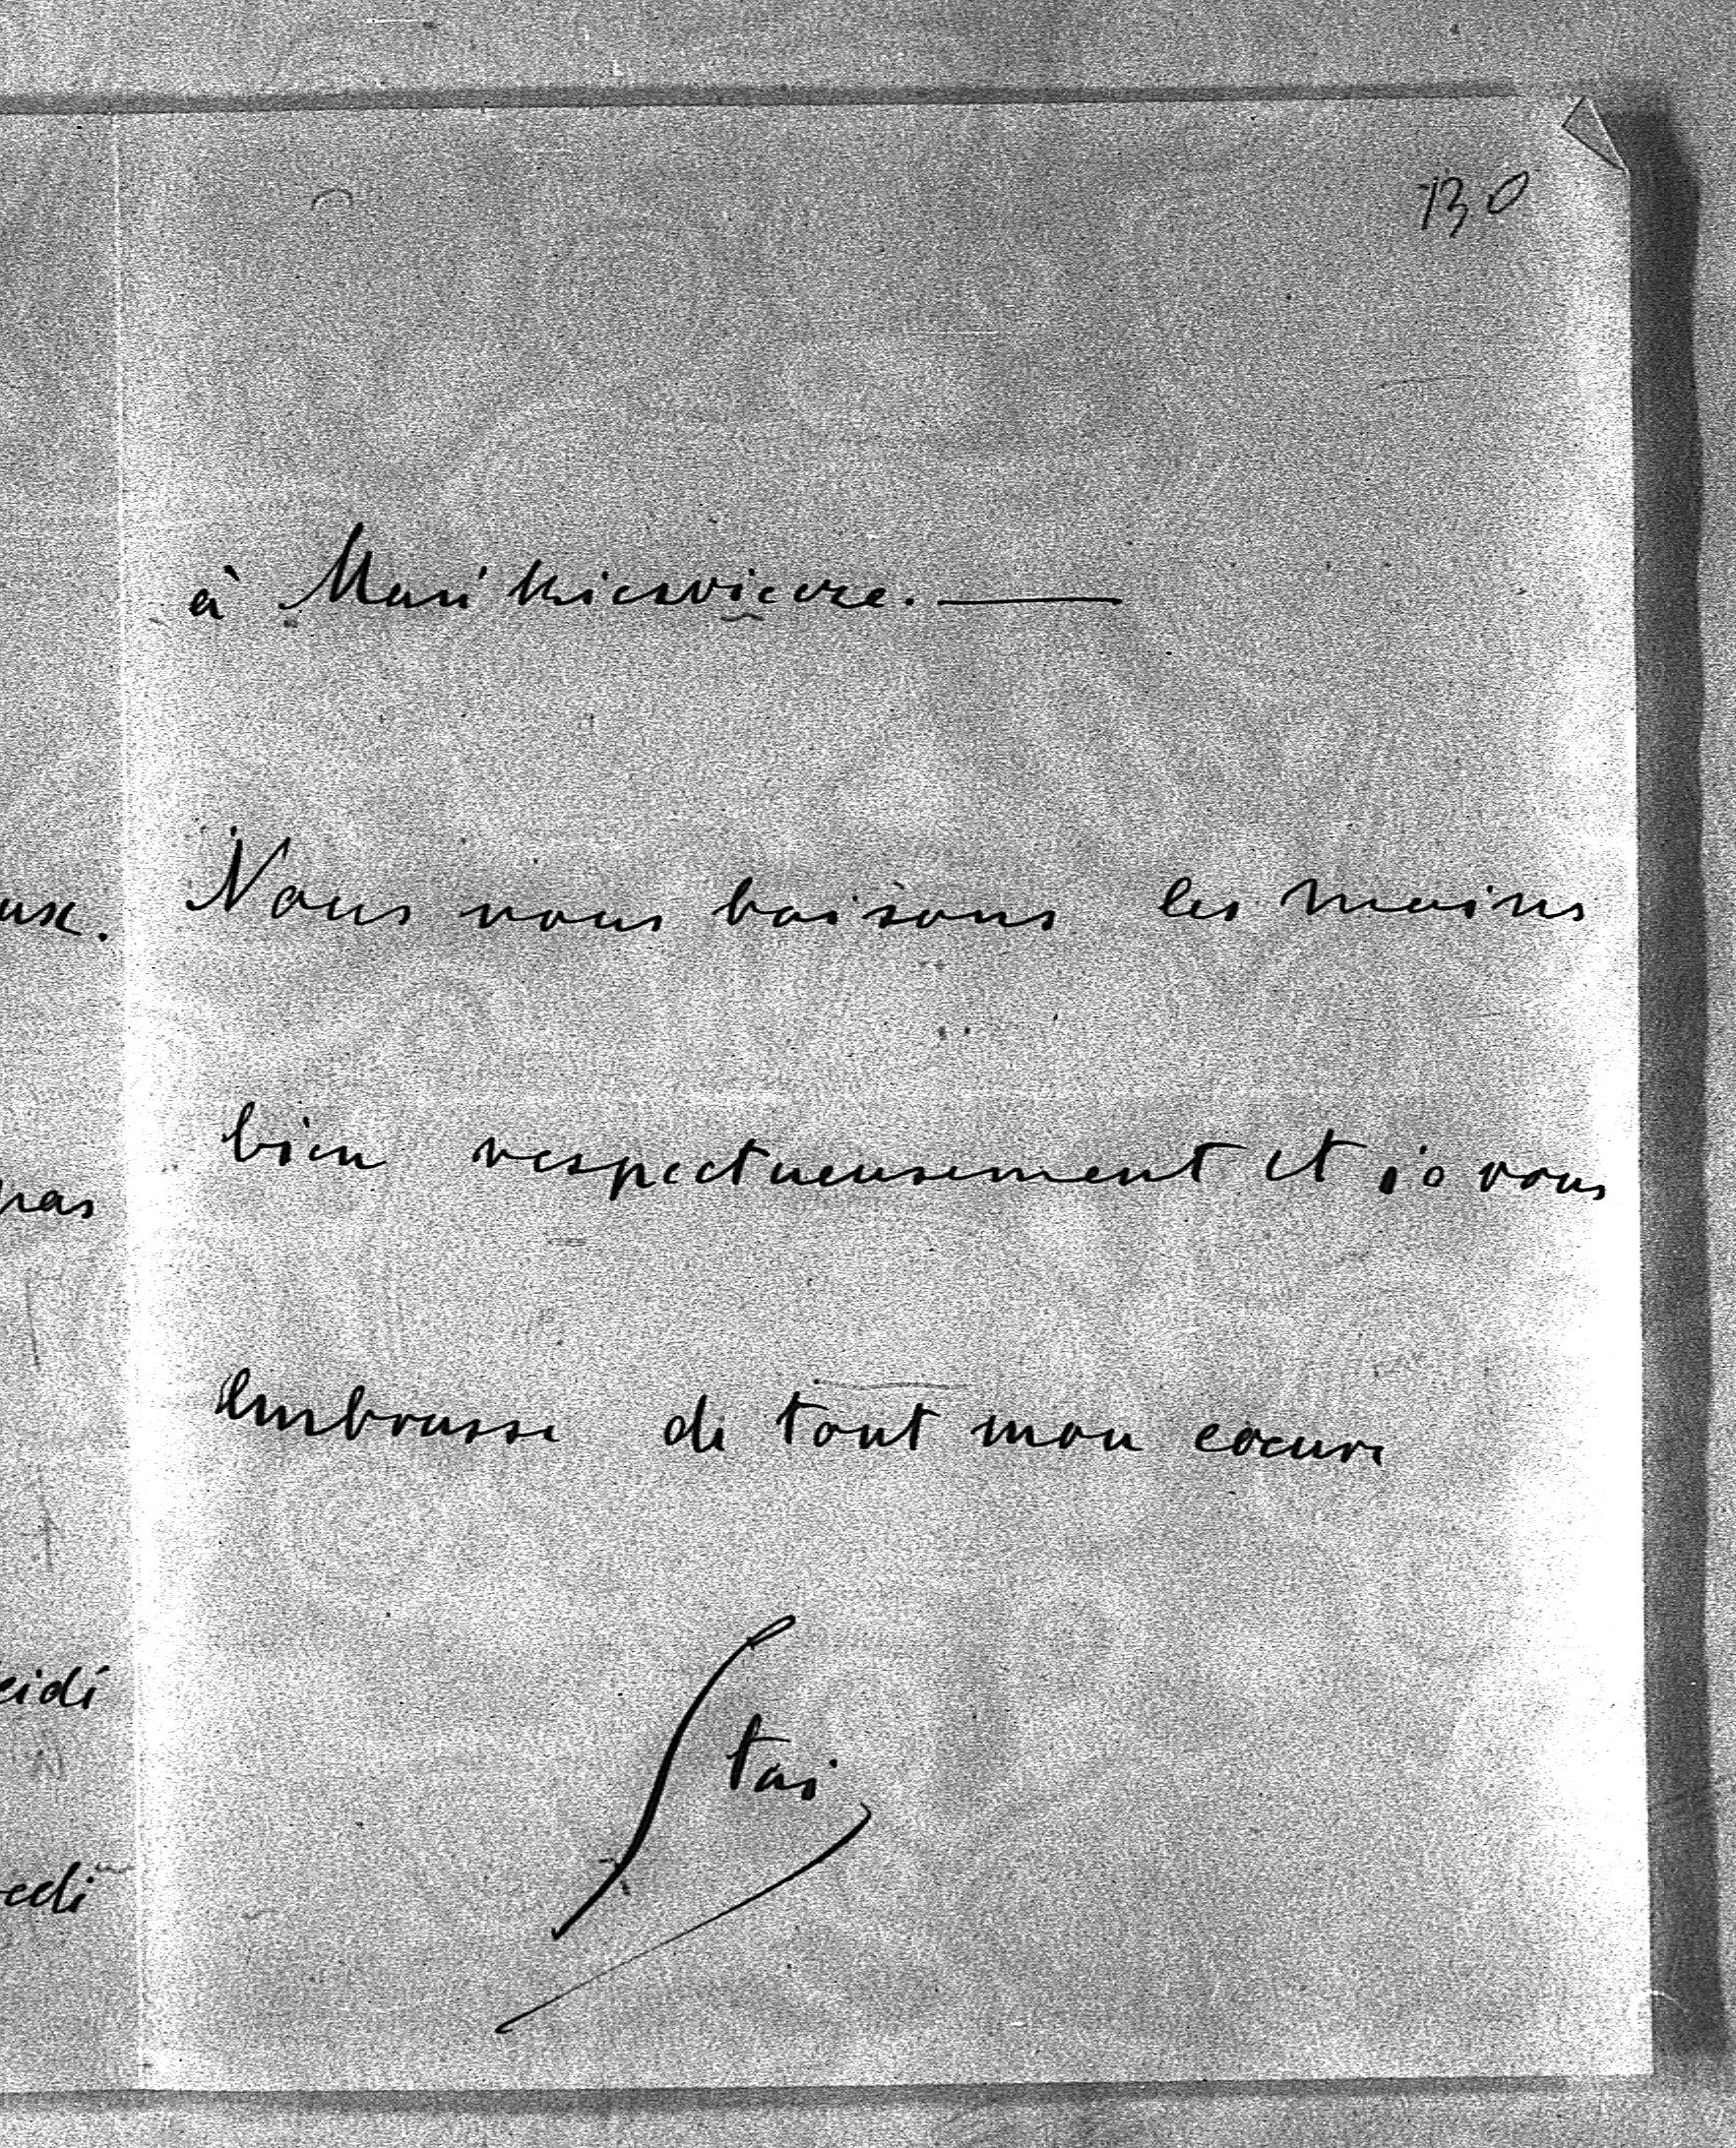 130
à
Nous vous baisons les mains
bien respectueusement et je vous
embrasse de tout mon coeur
Stas
ux.
pas
cidi
edi